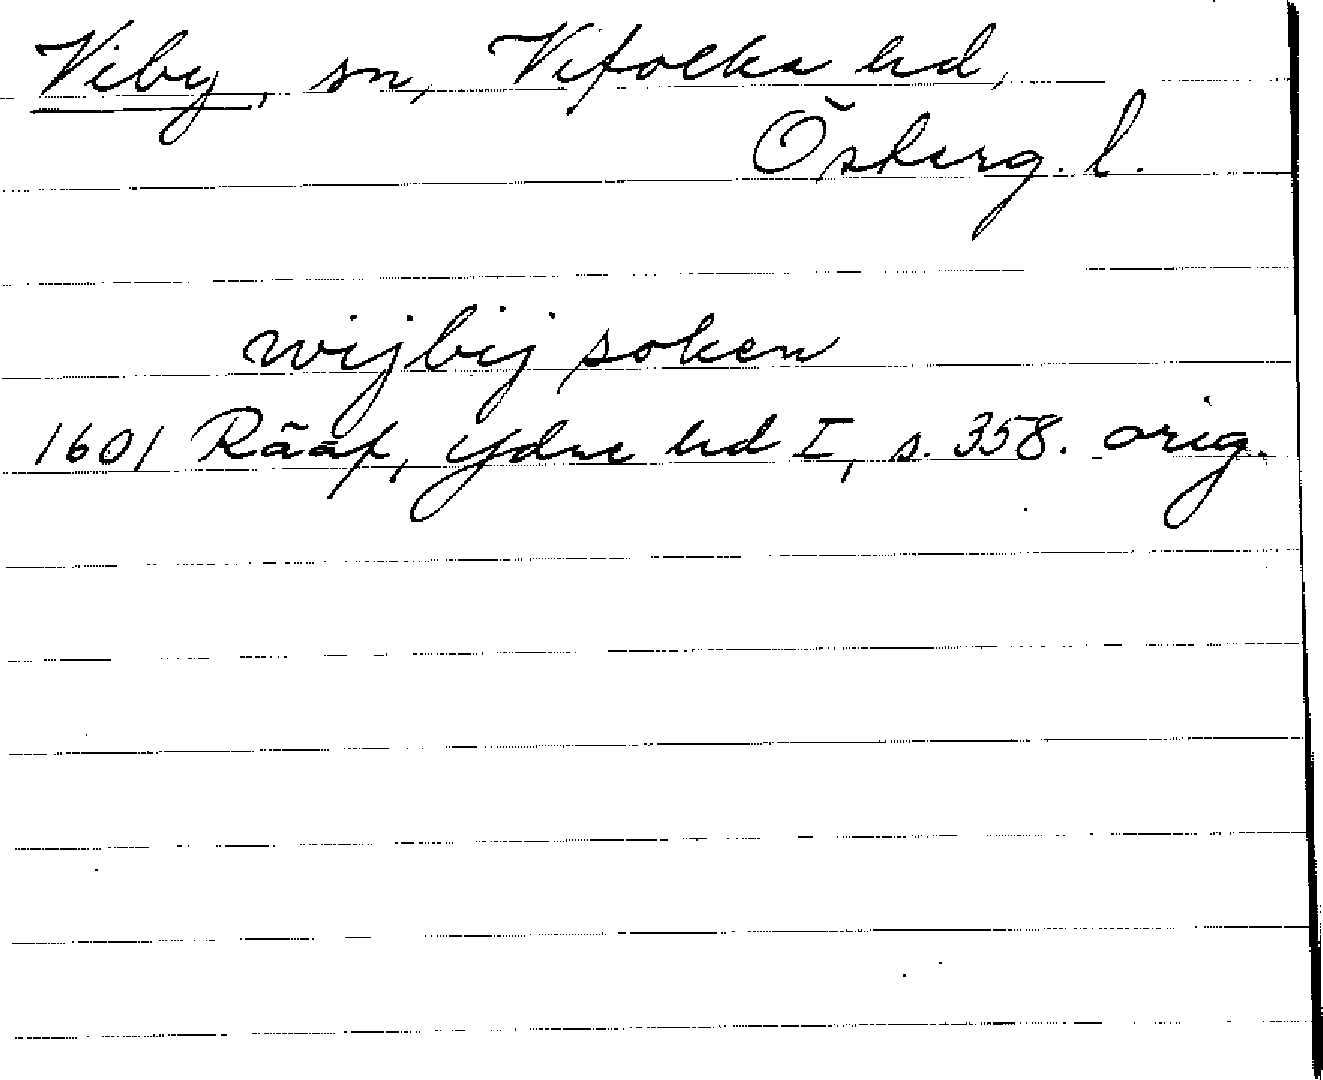 Viby, sn, Vifolka hd,
Österg. l.
wijbij soken
1601 Rääf, Ydre hd I, s. 358. orig.